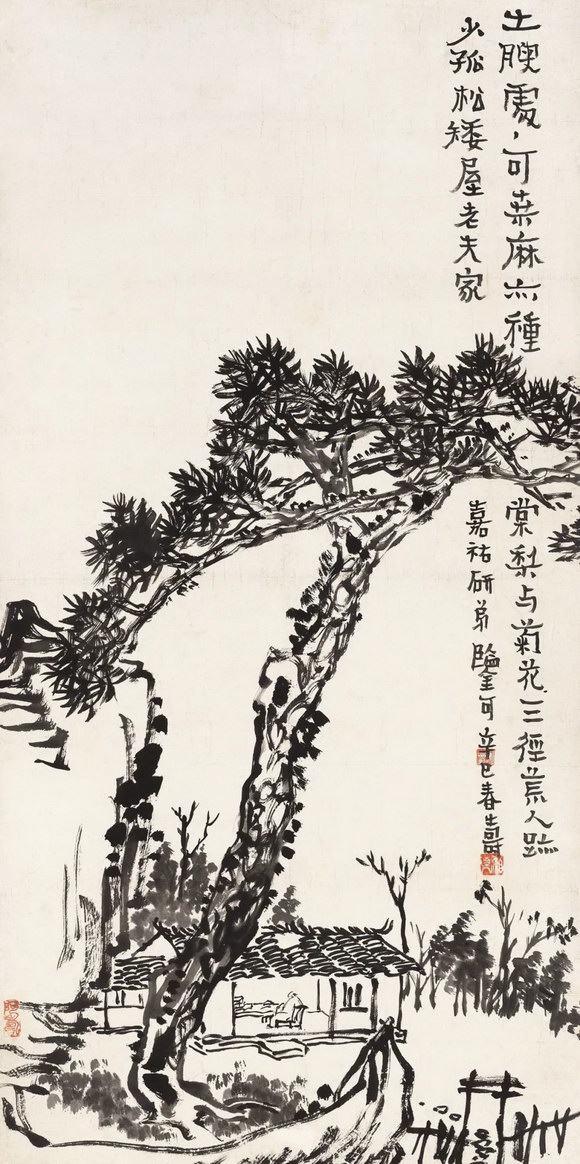 土腴處，可桑麻亦種
棠梨与菊花三徑荒人跡
少孤松矮屋老夫家
嘉祐研弟鑒可辛巳春壽